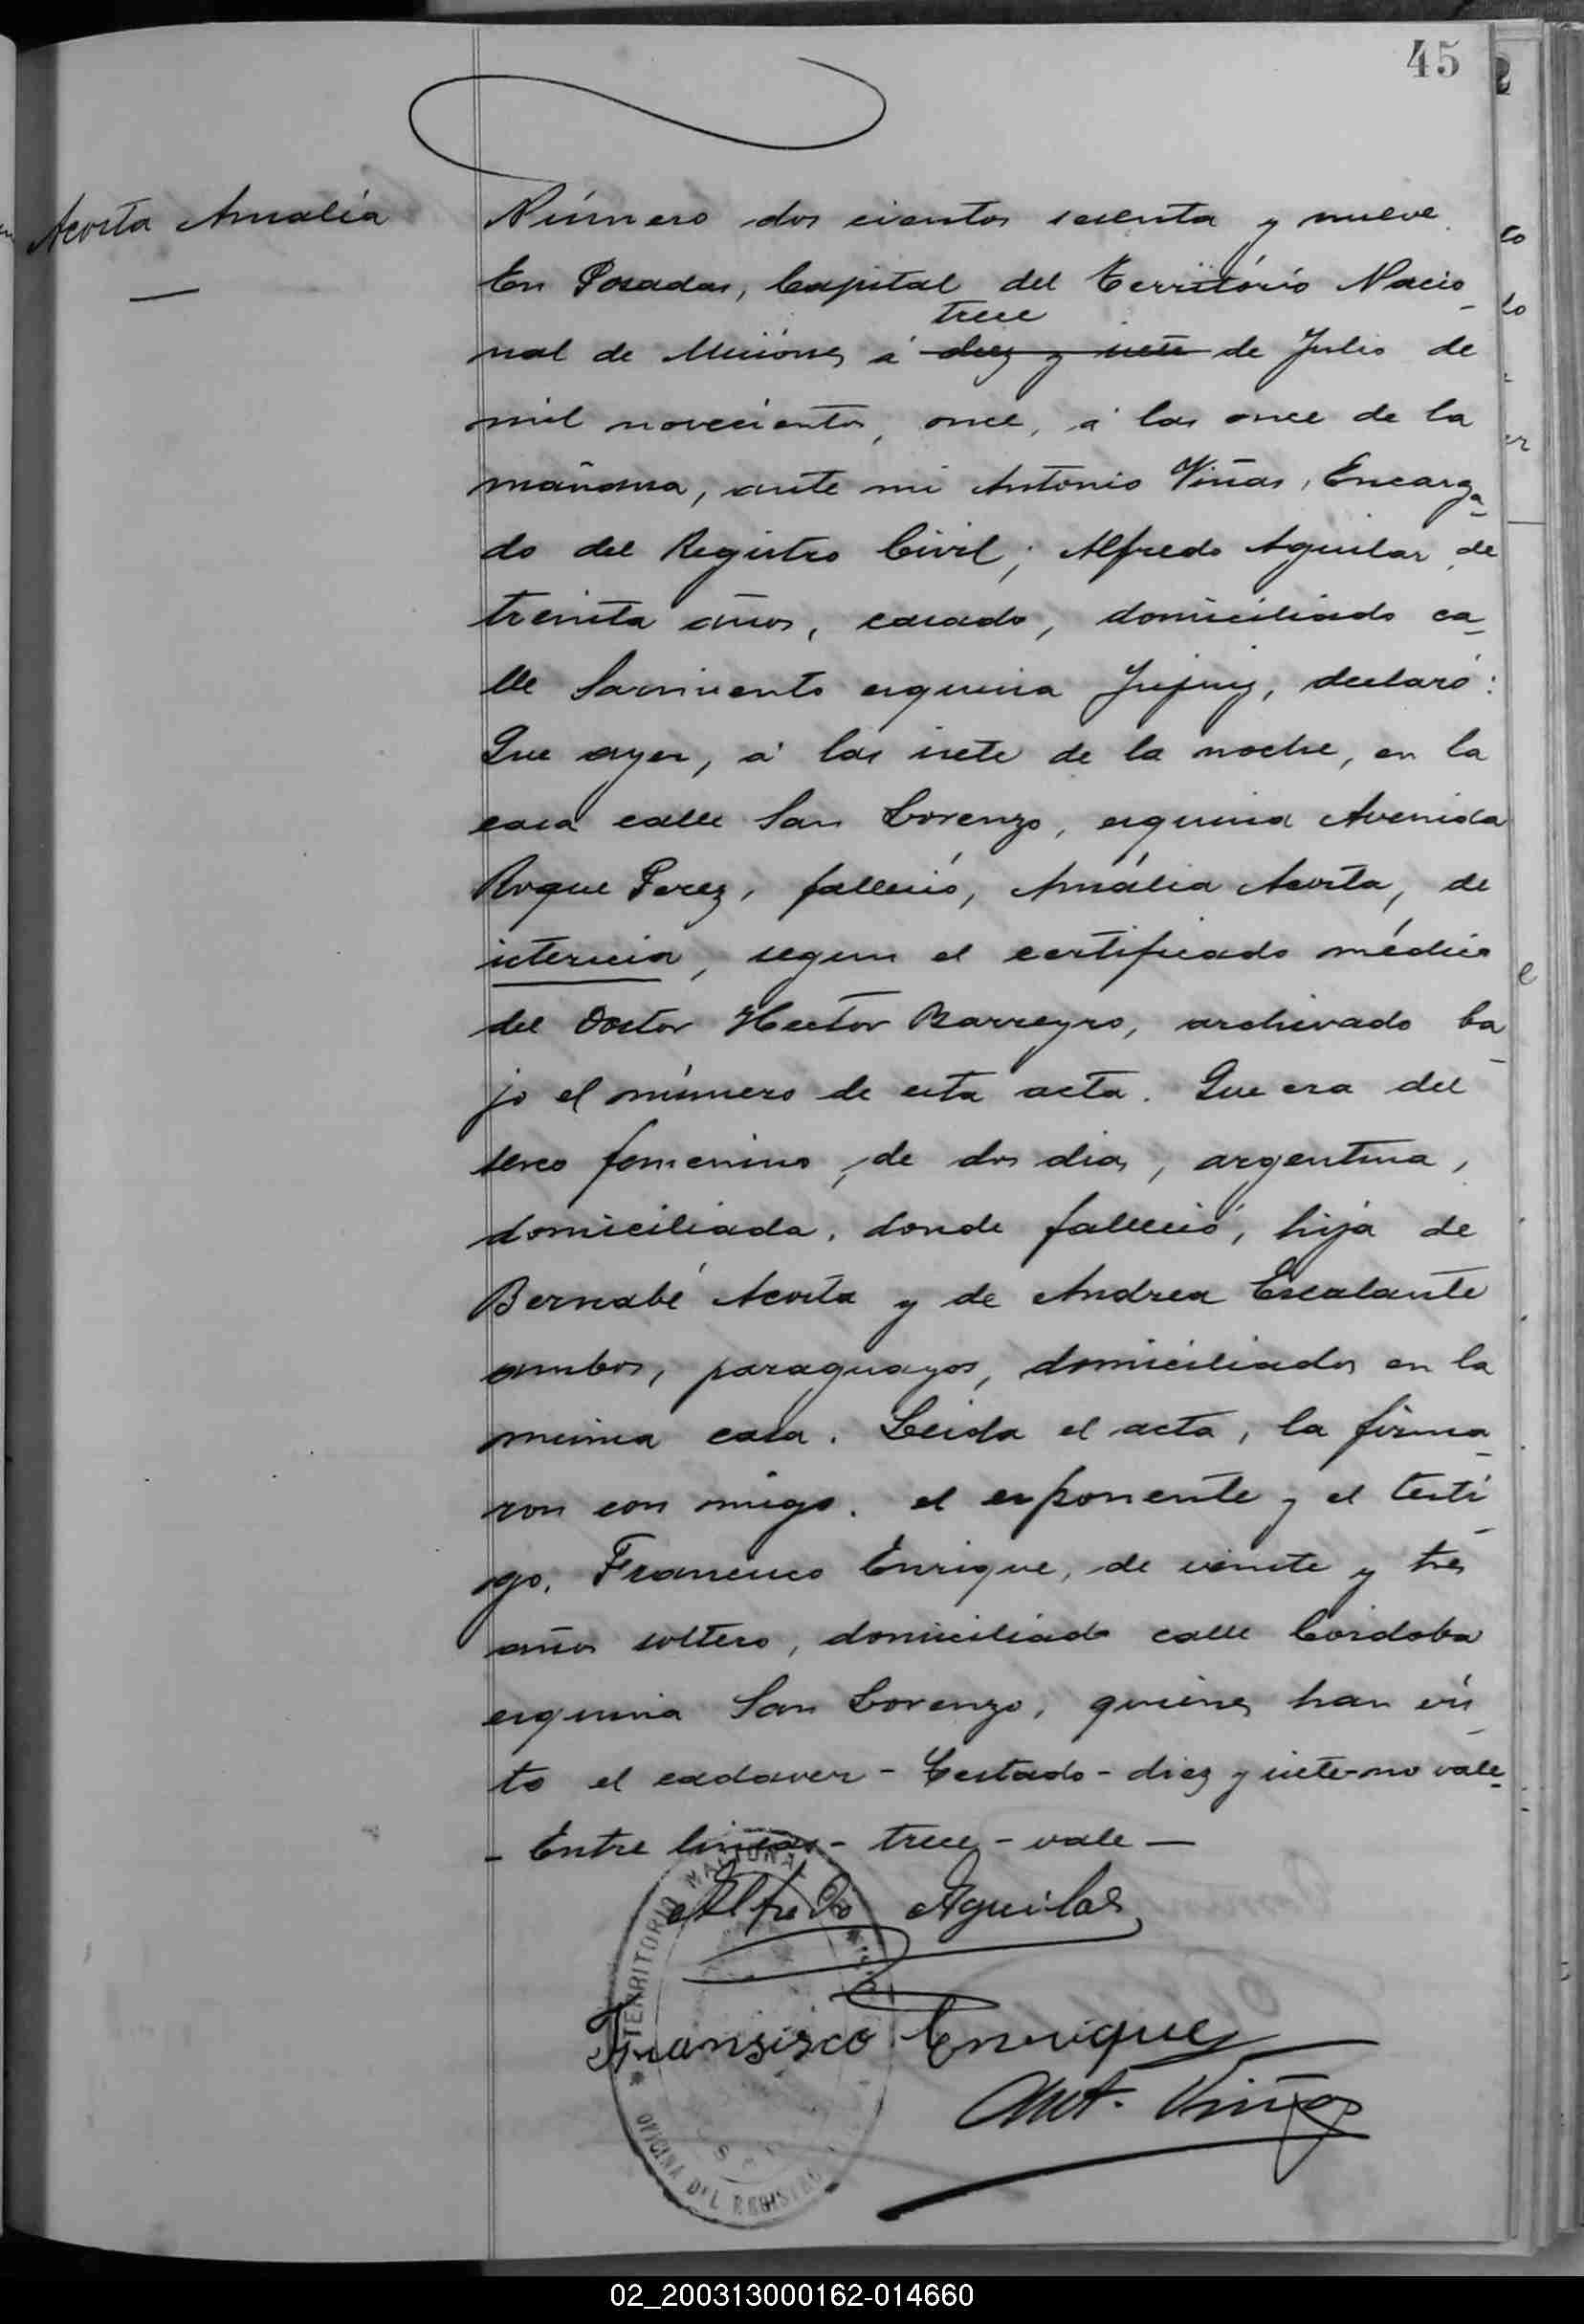 45
Acosta Amalia
Número dos cientos sesenta y nueve.
En Posadas, Capital del Território Nacio-
trece
nal de Misiónes á diez y siete de Julio de
mil novecientos, once, á las once de la
mañana, ante mi Antonio Viñas, Encarga-
do del Registro Civil; Alfredo Aguilar, de
treinta años, casado, domiciliado ca-
lle Sarmiento esquina Jujuy, declaró:
Que ayer, á las siete de la noche, en la
casa calle San Lorenzo, esquina Avenida
Roque Perez, falleció, Amália Acosta, de
ictericia, segun el certificado médico
del Doctor Hector Barreyro, archivado ba-
jo el número de esta acta. Que era del
sexo femenino, de dos dias, argentina,
domiciliada, donde falleció, hija de
Bernabé Acosta y de Andrea Escalante
ambos, paraguayos, domiciliados en la
misma casa. Leida el acta, la firma-
ron con migo. el exponente y el testi-
go, Francisco Enrique, de veinte y tres
años soltero, domiciliado calle Córdoba
esquina San Lorenzo, quiénes han vis-
to el cadaver - Testado - diez y siete - no vale
- Entre lineas - trece - vale -
Alfredo Aguilar
Fransisco Enriquez
Ant. Viñas
TERRITORIO NACIONAL
OFICINA DEL REGISTRO
02_200313000162-014660